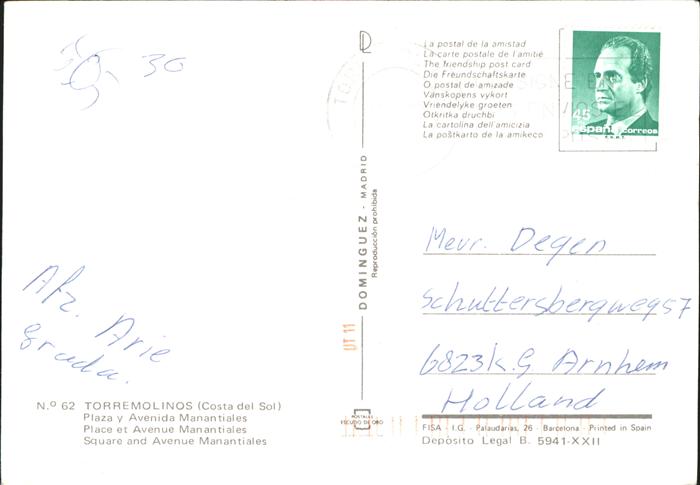 30
Afz. Arie
Truda.
N.º 62 TORREMOLINOS (Costa del Sol)
Plaza y Avenida Manantiales
Place et Avenue Manantiales
Square and Avenue Manantiales
DOMINGUEZ - MADRID
Reproducción prohibida
UT 11
POSTALES
ESCUDO DE ORO
La postal de la amistad
La carte postale de l'amitié
The friendship post card
Die Freundschaftskarte
O postal de amizade
Vänskopens vykort
Vriendelyke groeten
Otkritka druchbi
La cartolina dell'amicizia
La poŝtkarto de la amikeco
45
españa correos
Mevr. Degen
Schuttersbergweg 57
6823K.G Arnhem
Holland
FISA - I.G. - Palaudarias, 26 - Barcelona - Printed in Spain
Depósito Legal B. 5941-XXII